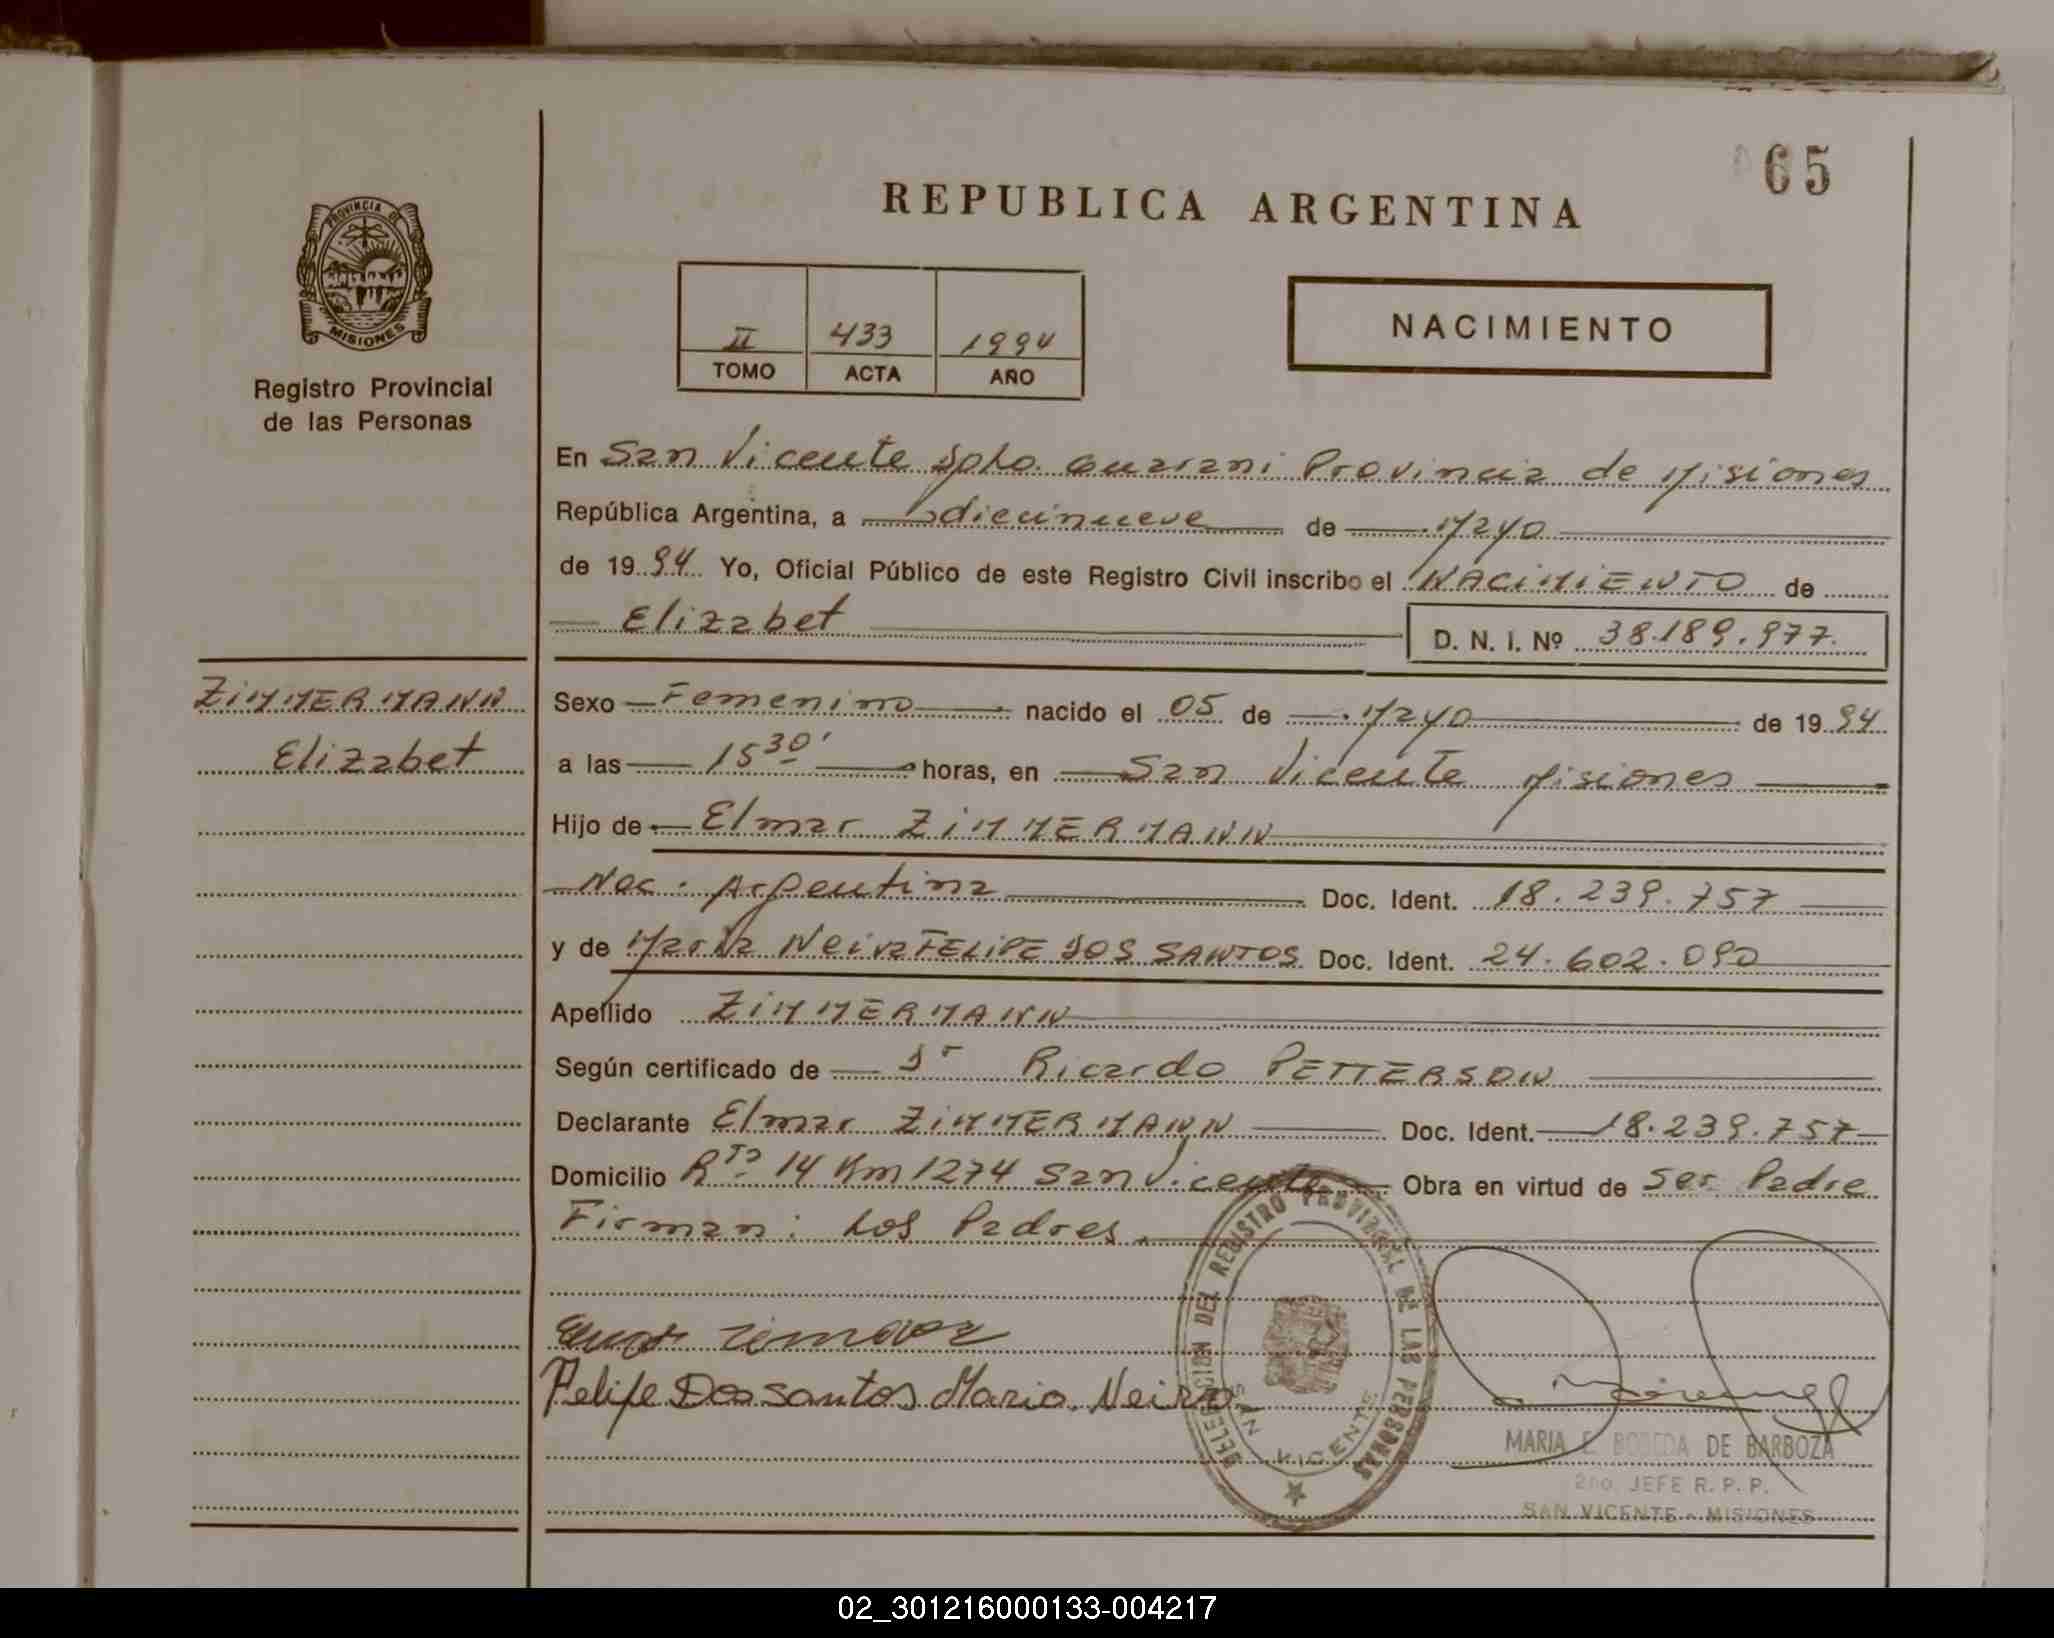 065
REPUBLICA ARGENTINA
PROVINCIA DE
MISIONES
Registro Provincial
de las Personas
II 433 1994
TOMO ACTA AÑO
NACIMIENTO
En San Vicente Dpto. Guarani Provincia de Misiones
República Argentina, a diecinueve de Mayo
de 1994 Yo, Oficial Público de este Registro Civil inscribo el NACIMIENTO de
Elizabet D. N. I. Nº 38.189.977.
ZIMMERMANN
Elizabet
Sexo Femenino nacido el 05 de Mayo de 1994
a las 15 30' horas, en San Vicente Misiones
Hijo de Elmar ZIMMERMANN
Nac. Argentina Doc. Ident. 18.239.757
y de Maria Neiva FELIPE DOS SANTOS Doc. Ident. 24.602.090
Apellido ZIMMERMANN
Según certificado de Dr Ricardo PETTERSON
Declarante Elmar ZIMMERMANN Doc. Ident. 18.239.757
Domicilio Rta 14 Km 1274 San Vicente Obra en virtud de ser Padre
Firman: Los Padres.
Felipe Dos santos Maria Neiva
DELEGACION DEL REGISTRO PROVINCIAL DE LAS PERSONAS
SAN VICENTE
MARIA E. BOBEDA DE BARBOZA
2do. JEFE R. P. P.
SAN VICENTE - MISIONES
02_301216000133-004217